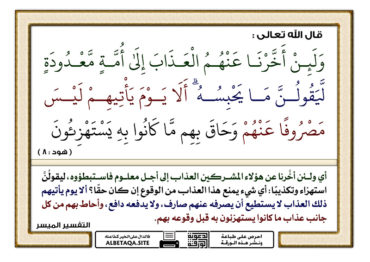 قال الله تعالى :
وَلَئِنْ أَخَّرْنَا عَنْهُمُ الْعَذَابَ إِلَىٰ أُمَّةٍ مَّعْدُودَةٍ
لَّيَقُولُنَّ مَا يَحْبِسُهُ ۗ أَلَا يَوْمَ يَأْتِيهِمْ لَيْسَ
مَصْرُوفًا عَنْهُمْ وَحَاقَ بِهِم مَّا كَانُوا بِهِ يَسْتَهْزِئُونَ
( هود : ٨ )
أي ولئن أخرنا عن هؤلاء المشركين العذاب إلى أجل معلوم فاستبطؤوه ، ليقولُنَّ
استهزاء وتكذيبًا: أي شيء يمنع هذا العذاب من الوقوع إن كان حقًا؟ ألا يوم يأتيهم
ذلك العذاب لا يستطيع أن يصرفه عنهم صارف ، ولا يدفعه دافع ، وأحاط بهم من كل
جانب عذاب ما كانوا يستهزئون به قبل وقوعه بهم.
التفسير الميسر
احرص على طباعة
ونشر هذه الورقة
الدال على الخير كفاعله
ALBETAQA.SITE